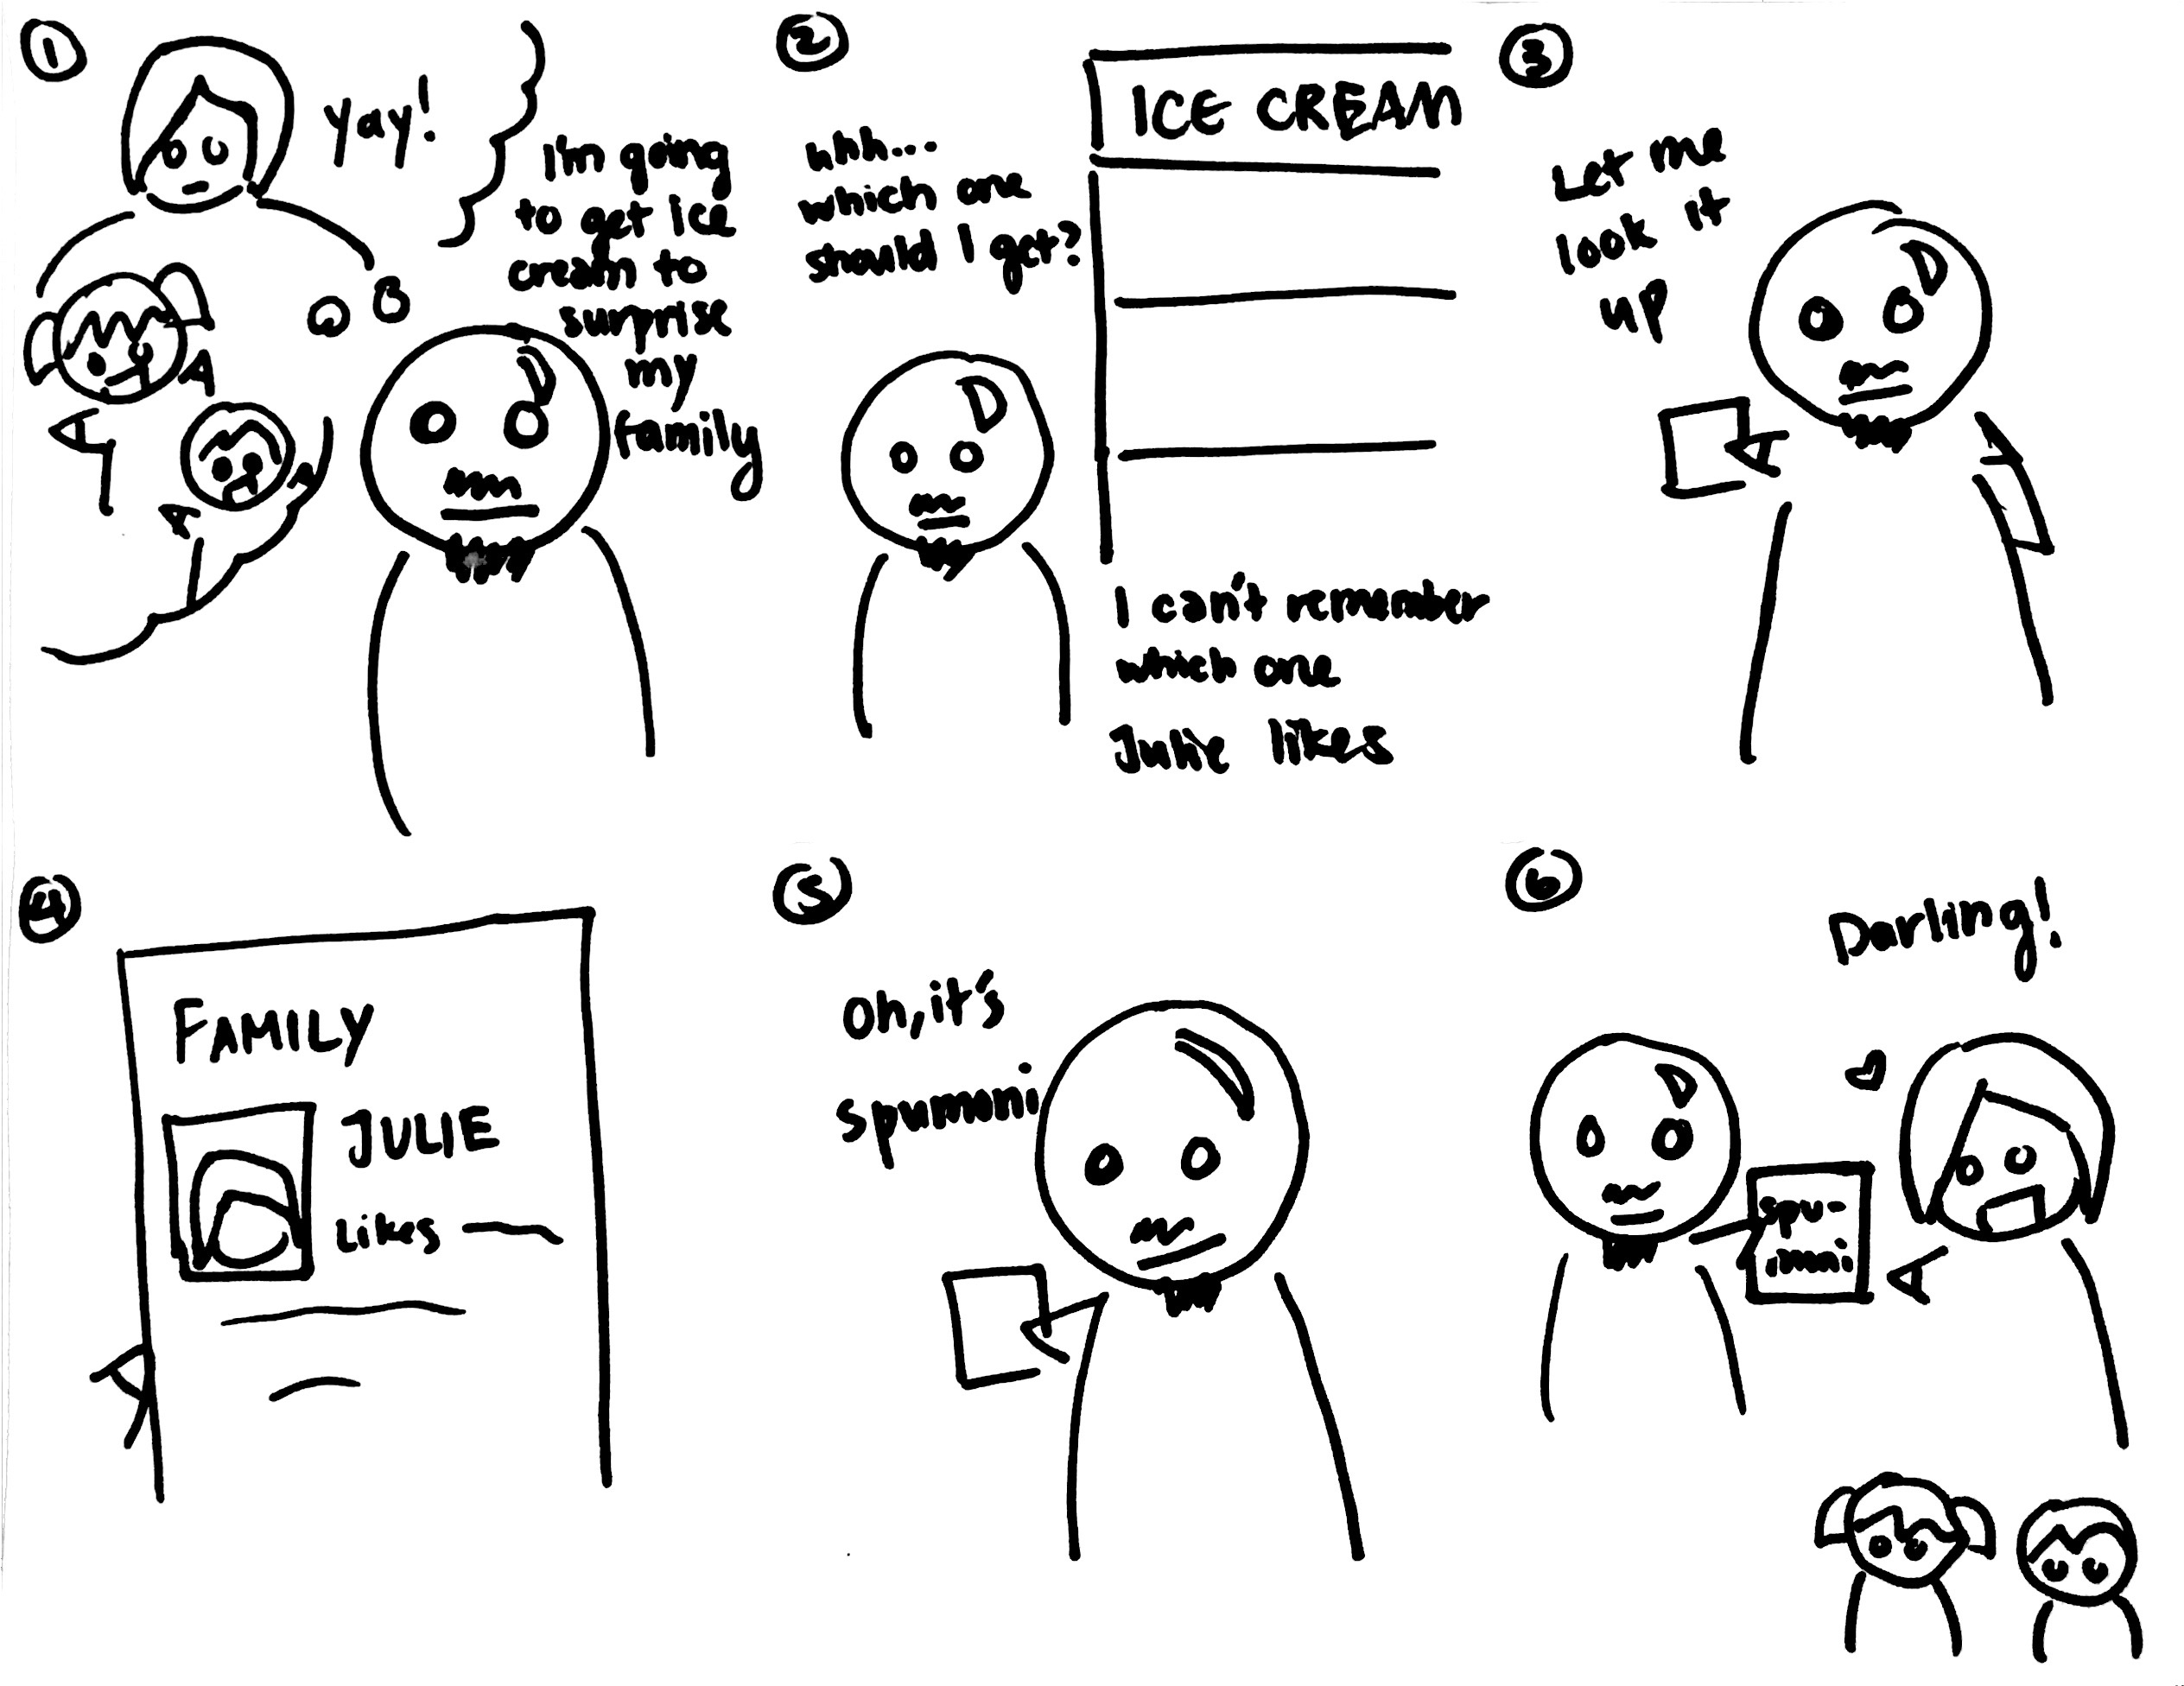 1
Yay!
I'm going
to get ice
cream to
surprise
my
family
2
uhh...
which one
should I get?
ICE CREAM
I can't remember
which one
Julie likes
3
Let me
look it
up
4
FAMILY
JULIE
Likes
5
Oh, it's
spumoni
6
Darling!
spu-
moni